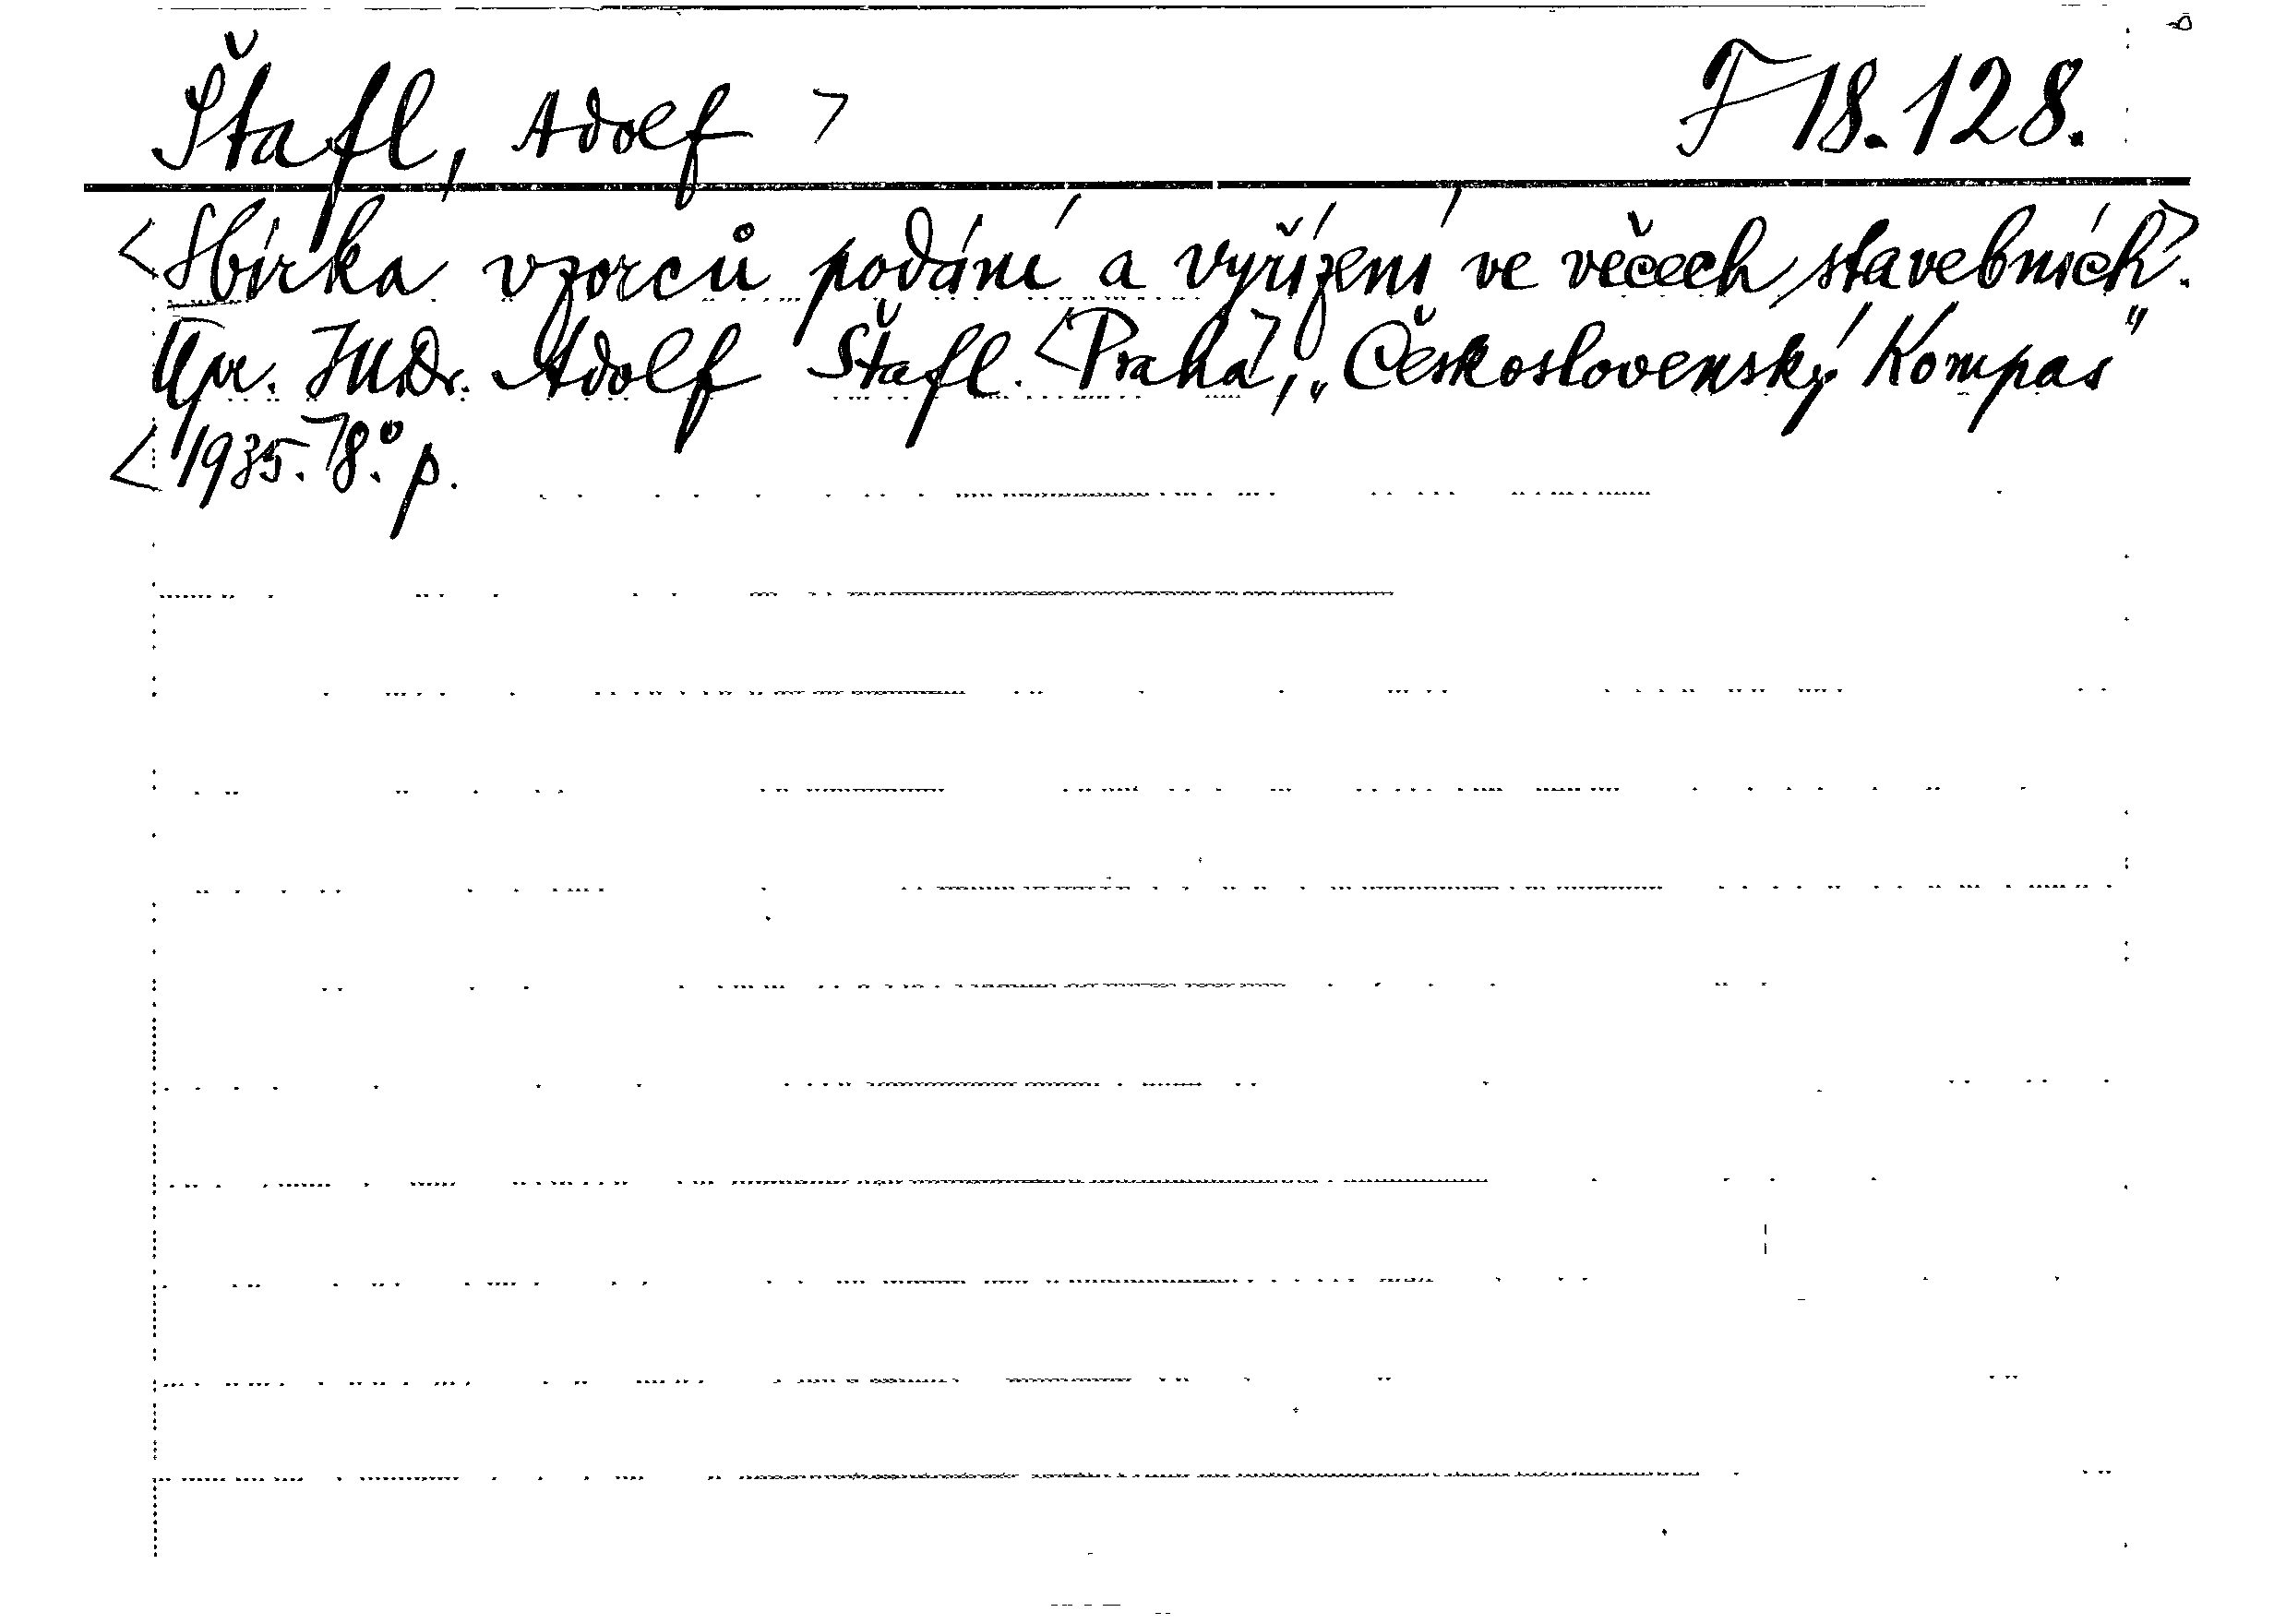 Štafl, Adolf > F 18.128.
<Sbírka vzorců podání a vyřízení ve věcech stavebních>.
Upr. JUDr. Adolf Štafl. <Praha>, „Československý Kompas"
<1935.> 8.° p.